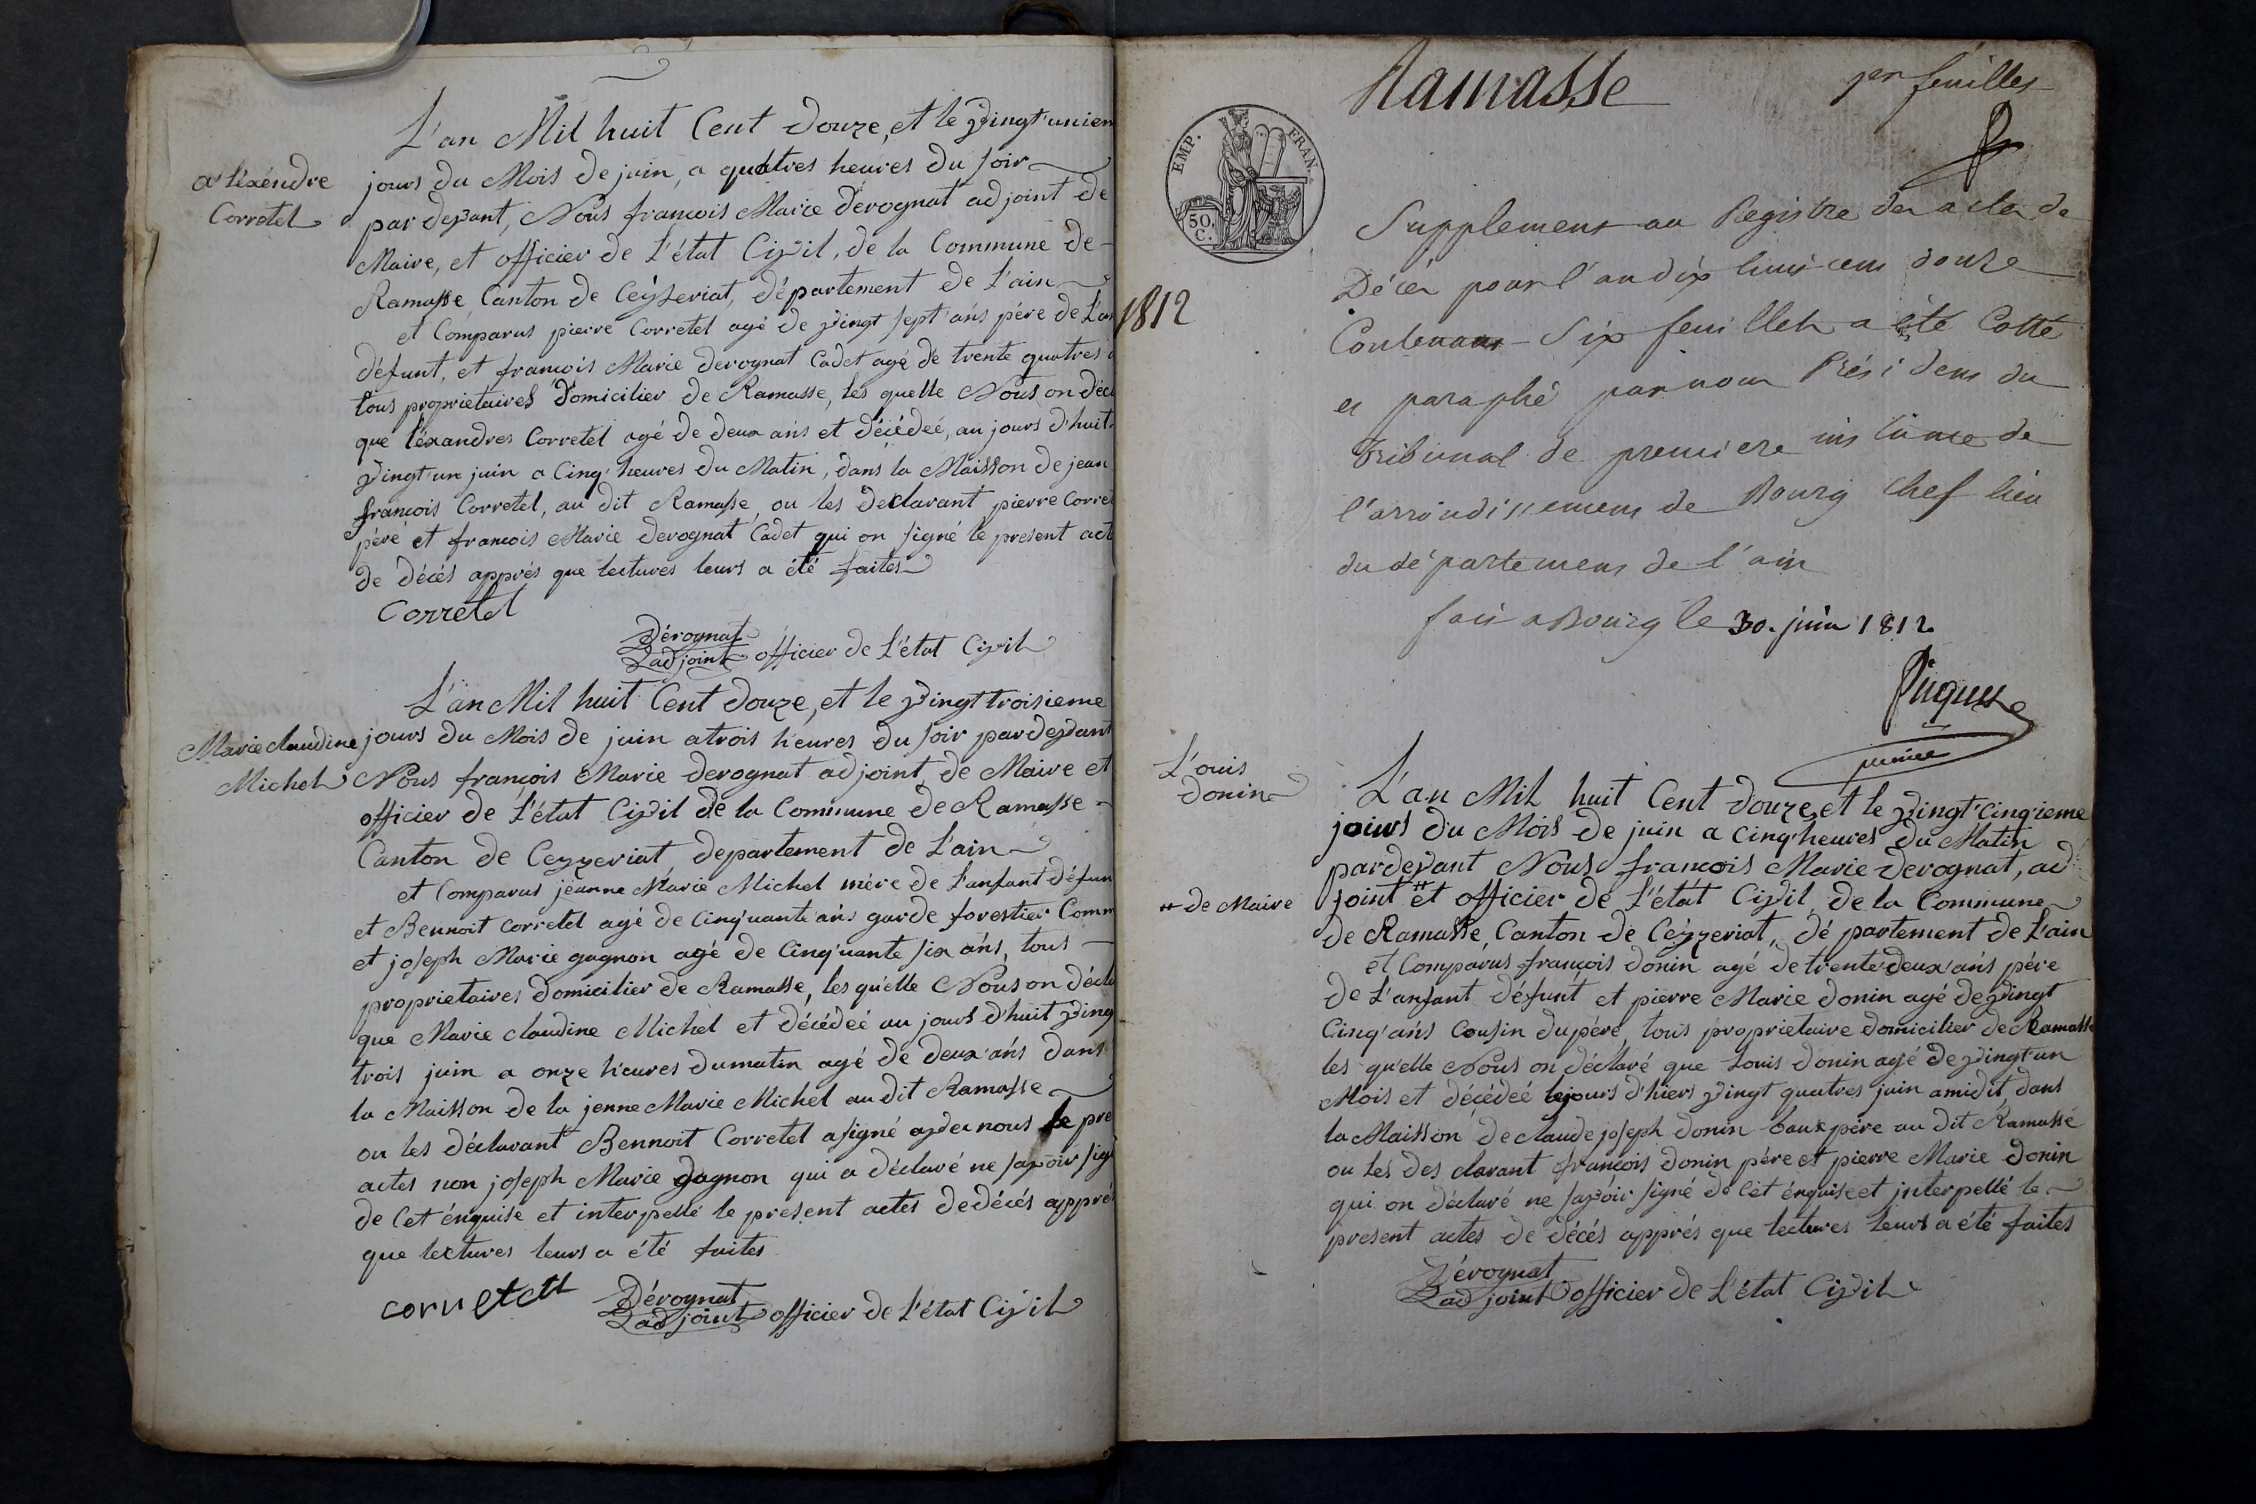 L'an Mil huit Cent douze, et le vingt'uniem
a'léxéndre
Corretel
jours du Mois de juin, a quattres heures du soir
par devant, Nous francois Marie derognat adjoint de
Maire, et officier de L'état Civil, de la Commune de
Ramasse, Canton de Ceÿseriat, département de L'ain
et Comparus pierre Corretel agé de vingt sept ans pére de L'an
défunt, et francois Marie derognat Cadet agé de trente quatres
tous propriétaires domicilier de Ramasse, les quelle Nous on décl
que léxandres Corretel agé de deux ans et décédeé, au jours d'huit
vingt'un juin a Cinq' heures du Matin, dans la Maisson de jean
francois Corretel, au dit Ramasse, ou les declarant pierre Corret
pére et francois Marie derognat Cadet qui on signé le present act
de décés apprés que lectures leurs a été faites
Corretel
Dérognat
adjoint officier de L'état Civil
L'an Mil huit Cent douze, et le vingt troisieme
Marie claudine
Michel
jours du Mois de juin a trois heures du soir pardevant
Nous françois Marie derognat adjoint, de Maire et
officier de L'état Civil de la Commune de Ramasse
Canton de Ceyzeriat, departement de L'ain
et Comparus jeanne Marie Michel mére de L'anfant défun
et Bennoit Corretel agé de Cinq'uante ans garde forestier Comm
et joseph Marie gagnon agé de Cinq'uante six ans, tous
proprietaires domicilier de Ramasse, les qu'elle Nous on décla
que Marie claudine Michel et décédeé au jours d'huit ving
trois juin a onze heures dumatin agé de deux ans dans
la Maisson de la jenne Marie Michel au dit Ramasse
ou les déclarant Bennoit Corretel a signé avec nous le pre
actes non joseph Marie gagnon qui a déclaré ne savoir sig
de Cet énquise et interpellé le present actes de décés apprés
que lectures leurs a été faites
corretell
Dérognat
adjoint officier de L'état Civil
Ramasse
1er feuillet
EMP. FRAN.
50. C.
1812
Supplement au Registre des actes de
Décès pour l'an dix huit cent douze
Contenant Six feuillets a été Cotté
et paraphé par nous Président du
Tribunal de premiere instance de
l'arrondissement de Bourg Chef lieu
du département de l'ain
fait a Bourg le 30. juin 1812
L'ouis
donin
L'an Mil huit Cent douze, et le vingt'cinq'ieme
jours du Mois de juin a cinq'heures du Matin
pardevant Nous francois Marie derognat, ad
** de Maire
joint ** et officier de L'état Civil, de la Commune
de Ramasse, Canton de Céyzeriat, dé partement de L'ain
et Comparus françois donin agé de trente deux ans pére
de L'anfant défunt et pierre Marie donin agé de vingt
Cinq' ans Cousin du pére, tous proprietaire domicilier de Ramasse
les qu'elle Nous on déclaré que Louis donin agé de vingt'un
Mois et décédeé lejours d'hiers vingt quatres juin amidit, dans
la Maisson de claude joseph donin baux pére au dit Ramassé
ou les des clarant françois donin pére et pierre Marie donin
qui on déclaré ne savoir signé de Cét énquise et jnterpellé le
present actes de décés apprés que lectures leurs a été faites
Dérognat
adjoint officier de L'état Civil